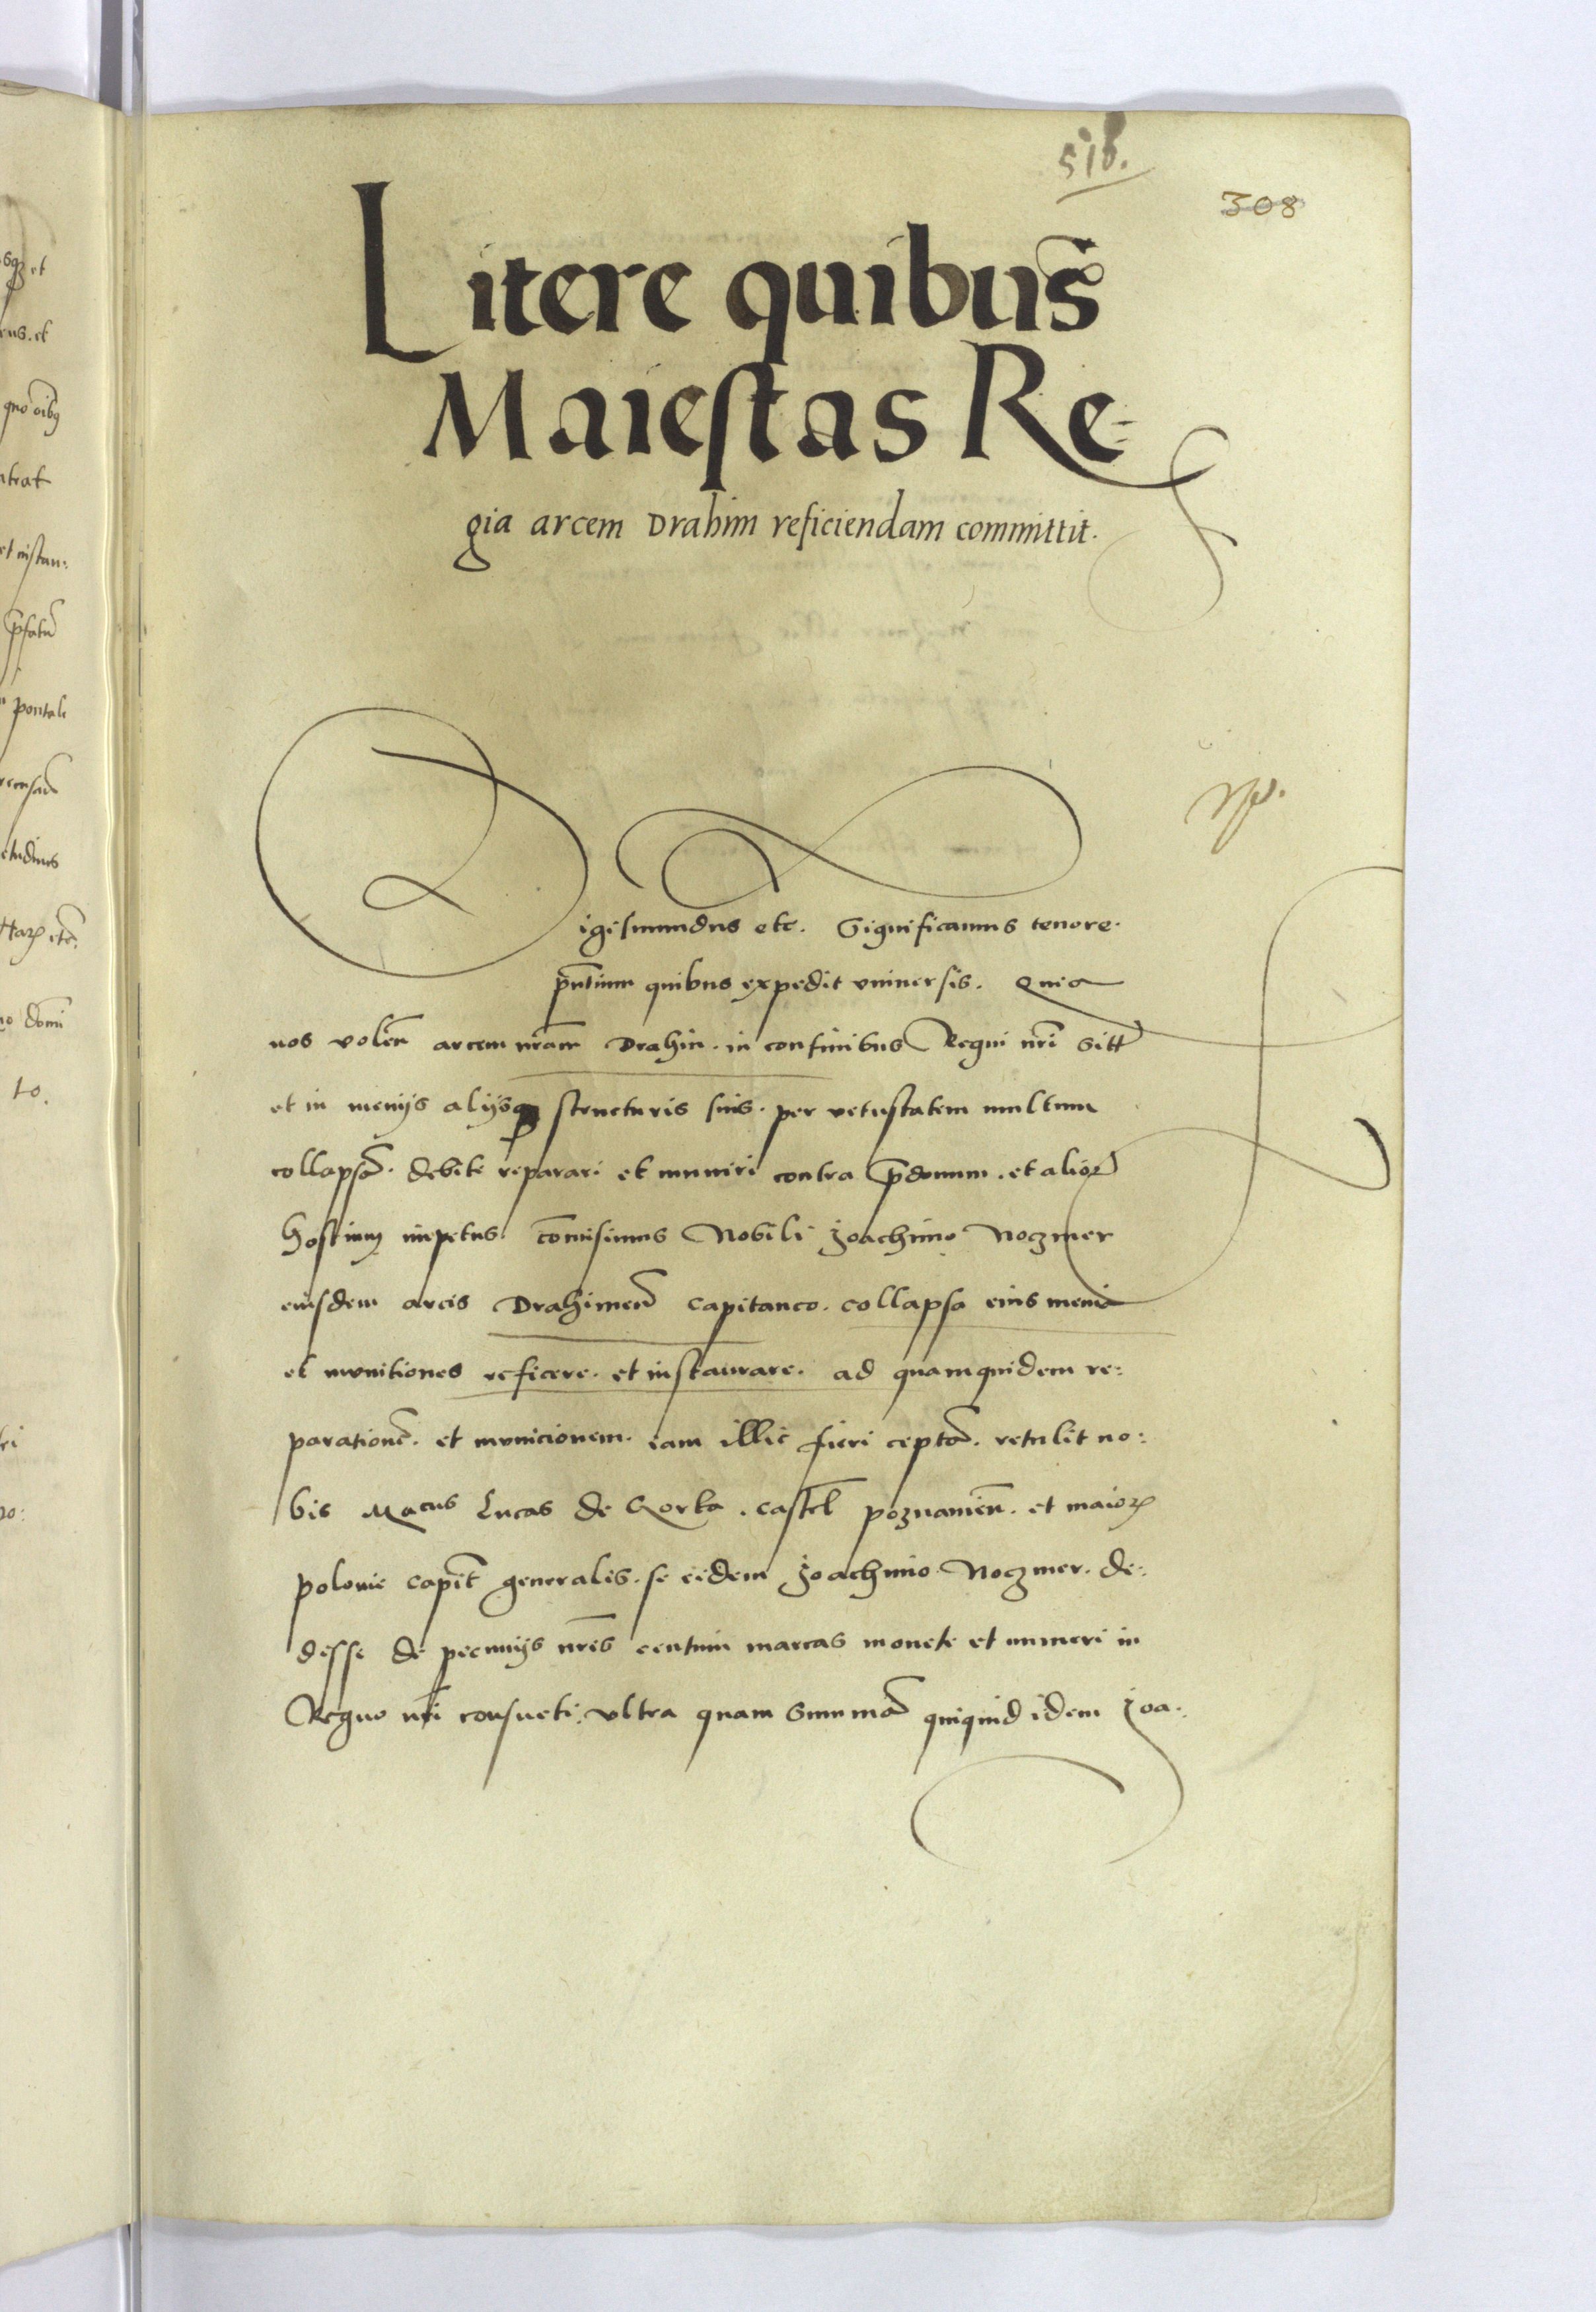 516.
308
Litere quibus
Maiestas Re-
gia arcem Drahim reficiendam committit.
Sigismundus etc. Significamus tenore.
pñtium quibus expedit vniuersis. Quia
nos volen̄ arcem nr̄am Drahim. in confinibus Regni nr̄i sitt̄
et in menijs alijsq3 structuris suis. per vetustatem multum
collapsā. debite reparari et muniri contra p̄donum. et alioꝝ
hostium impetus com̄isimus Nobili Joachimo Noczmer
eiusdem arcis Drahimen̄ capitaneo. collapsa eius menia
et munitiones reficere. et instaurare. ad quamquidem re:
parationē. et municionem. iam illic fieri ceptā. retulit no:
bis Macus Lucas de Gorka. castel̄l poznanien̄. et maioꝝ
polonie capit̄ generalis. se eidem Joachimo Noczmer. de:
disse de pecunijs nr̄is centum marcas monete et numeri in
Regno nr̄i consueti. vltra quam Summā quiquid idem Joa:
et
ens. et
oībꝰ
ntrat
et instan:
p̄fatū
etudinis
dom̄i
to.